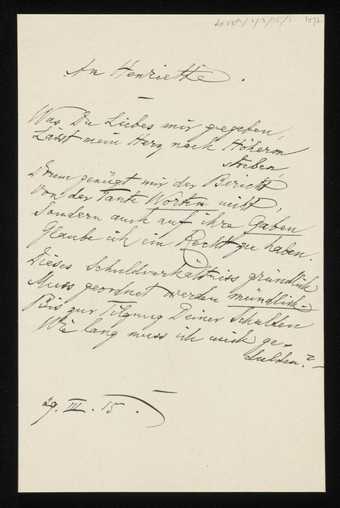 An Henriette.
Was Du Liebes mir gegeben,
Lässt mein Herz nach Höherem
streben,
Drum genügt mir der Bericht
Von der Tante Worten nicht,
Sondern auch auf ihre Gaben
Glaube ich ein Recht zu haben.
Dieses Schuldverhältniss gründlich
Muss geordnet werden mündlich.
Bis zur Tilgung Deiner Schulden
Wie lang muss ich mich ge-
dulden?
29. III. 15.